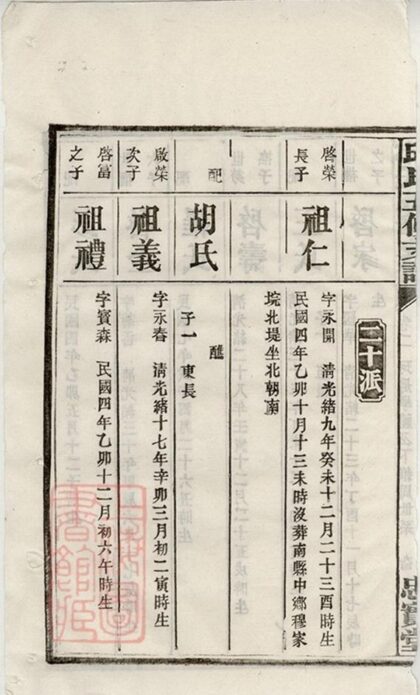 二十派
啓榮
長子
祖仁
字永開　清光緒九年癸未十二月二十三酉時生
民國四年乙卯十月十三未時沒葬南縣中鄉穆家
垸北堤坐北朝南
配
胡氏
醮
子一東長
啟榮
次子
祖義
字永春　清光緒十七年辛卯三月初二寅時生
啓富
之子
祖禮
字寶森　民國四年乙卯十二月初六午時生